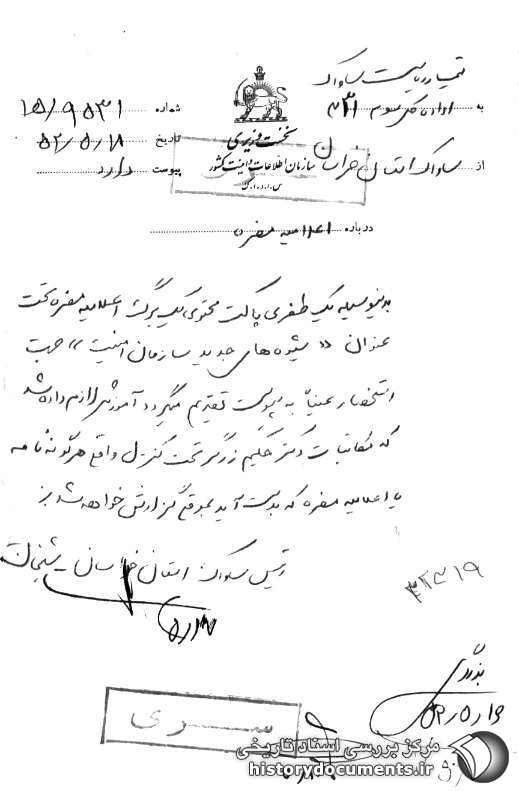 تیمسار ریاست ساواک
به اداره کل سوم ۳۴۱
شماره ۱۵/۹۵۳۱
نخست وزیری
تاریخ ۵۲/۵/۱۸
از ساواک استان خراسان
سازمان اطلاعات و امنیت کشور
پیوست دارد
س.ا.و.ا.ک
درباره اعلامیه مضره
بدینوسیله یک طغری پاکت محتوی یک برگ اعلامیه مضره تحت
عنوان «شیوه‌های جدید سازمان امنیت» جهت
استحضار عیناً به پیوست تقدیم میگردد آموزش لازم داده شد
که مکاتبات دکتر حکیم زرگر تحت کنترل واقع هرگونه نامه
یا اعلامیه مضره که بدست آید بموقع گزارش خواهد شد
رئیس ساواک استان خراسان
سری
مرکز بررسی اسناد تاریخی
historydocuments.ir